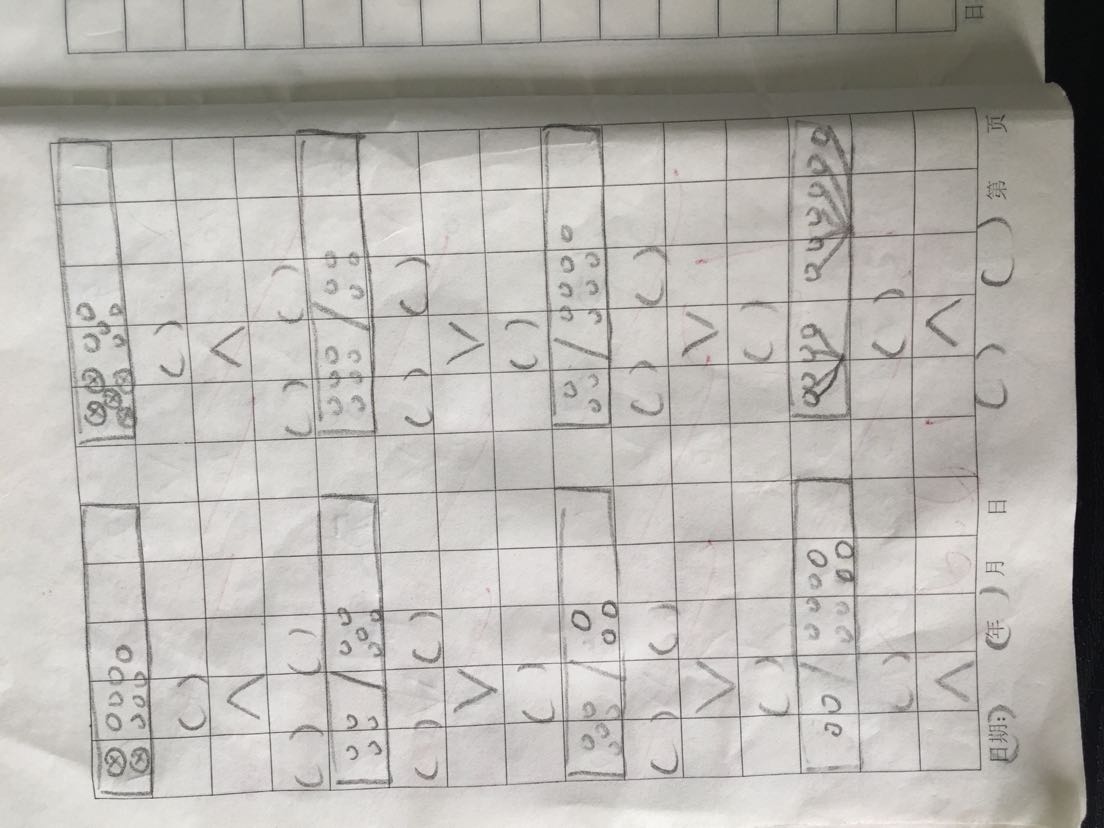 ( ) ( )
( ) ( ) ( ) ( )
( ) ( ) ( ) ( )
( ) ( )
( ) ( ) ( ) ( )
( ) ( )
( ) ( )
(日期:) (年 )月 日 ( ) ( ) 第 页
日